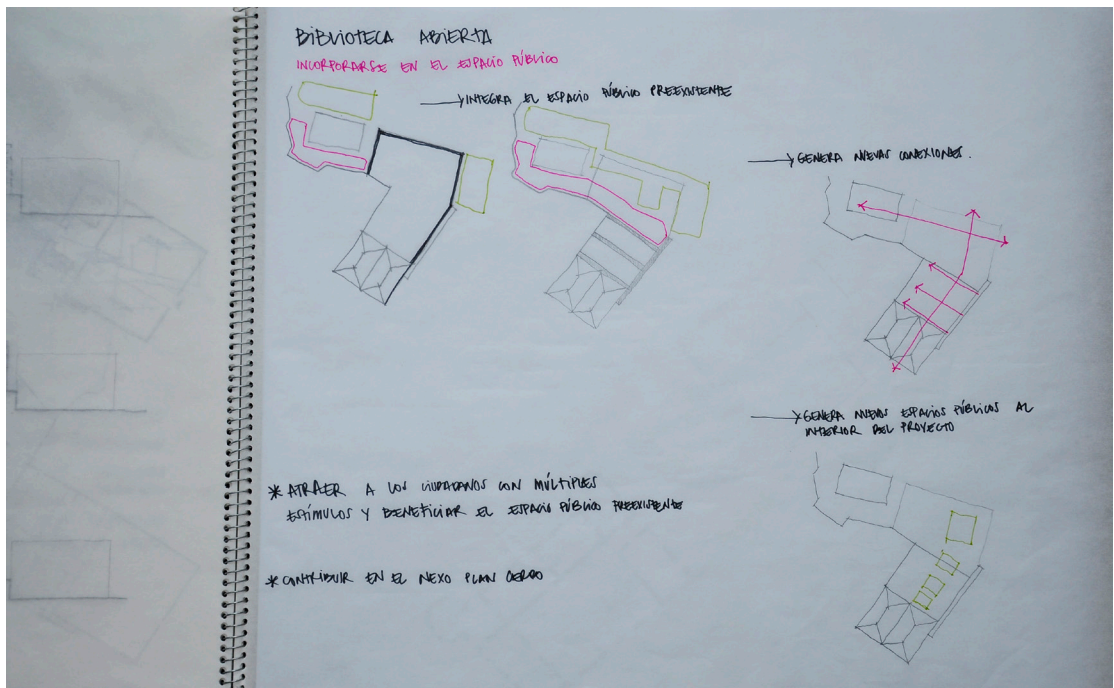 BIBLIOTECA ABIERTA
INCORPORARSE EN EL ESPACIO PÚBLICO
INTEGRA EL ESPACIO PÚBLICO PREEXISTENTE
GENERA NUEVAS CONEXIONES.
GENERA NUEVOS ESPACIOS PÚBLICOS AL
INTERIOR DEL PROYECTO
* ATRAER A LOS CIUDADANOS CON MÚLTIPLES
ESTÍMULOS Y BENEFICIAR EL ESPACIO PÚBLICO PREEXISTENTE
* CONTRIBUIR EN EL NEXO PLAN CERRO